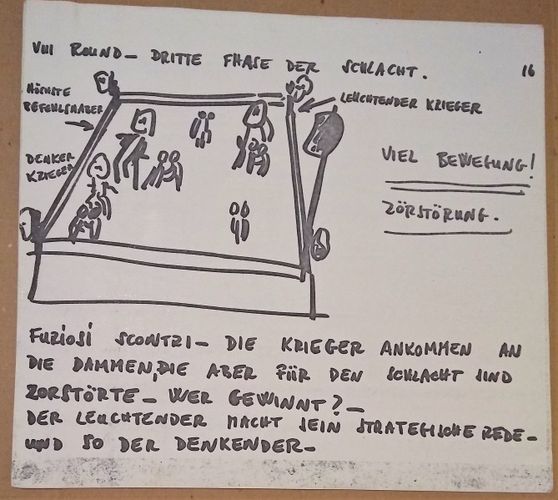 VIII ROUND – DRITTE PHASE DER SCHLACHT.
16
HÖCHSTE
BEFEHLSHABER
LEUCHTENDER KRIEGER
DENKER
KRIEGER
VIEL BEWEGUNG!
ZÖRSTÖRUNG.
FURIOSI SCONTRI – DIE KRIEGER ANKOMMEN AN
DIE DAMMEN, DIE ABER FÜR DEN SCHLACHT SIND
ZORSTÖRTE – WER GEWINNT? –
DER LEUCHTENDER MACHT SEIN STRATEGISCHE REDE –
UND SO DER DENKENDER –